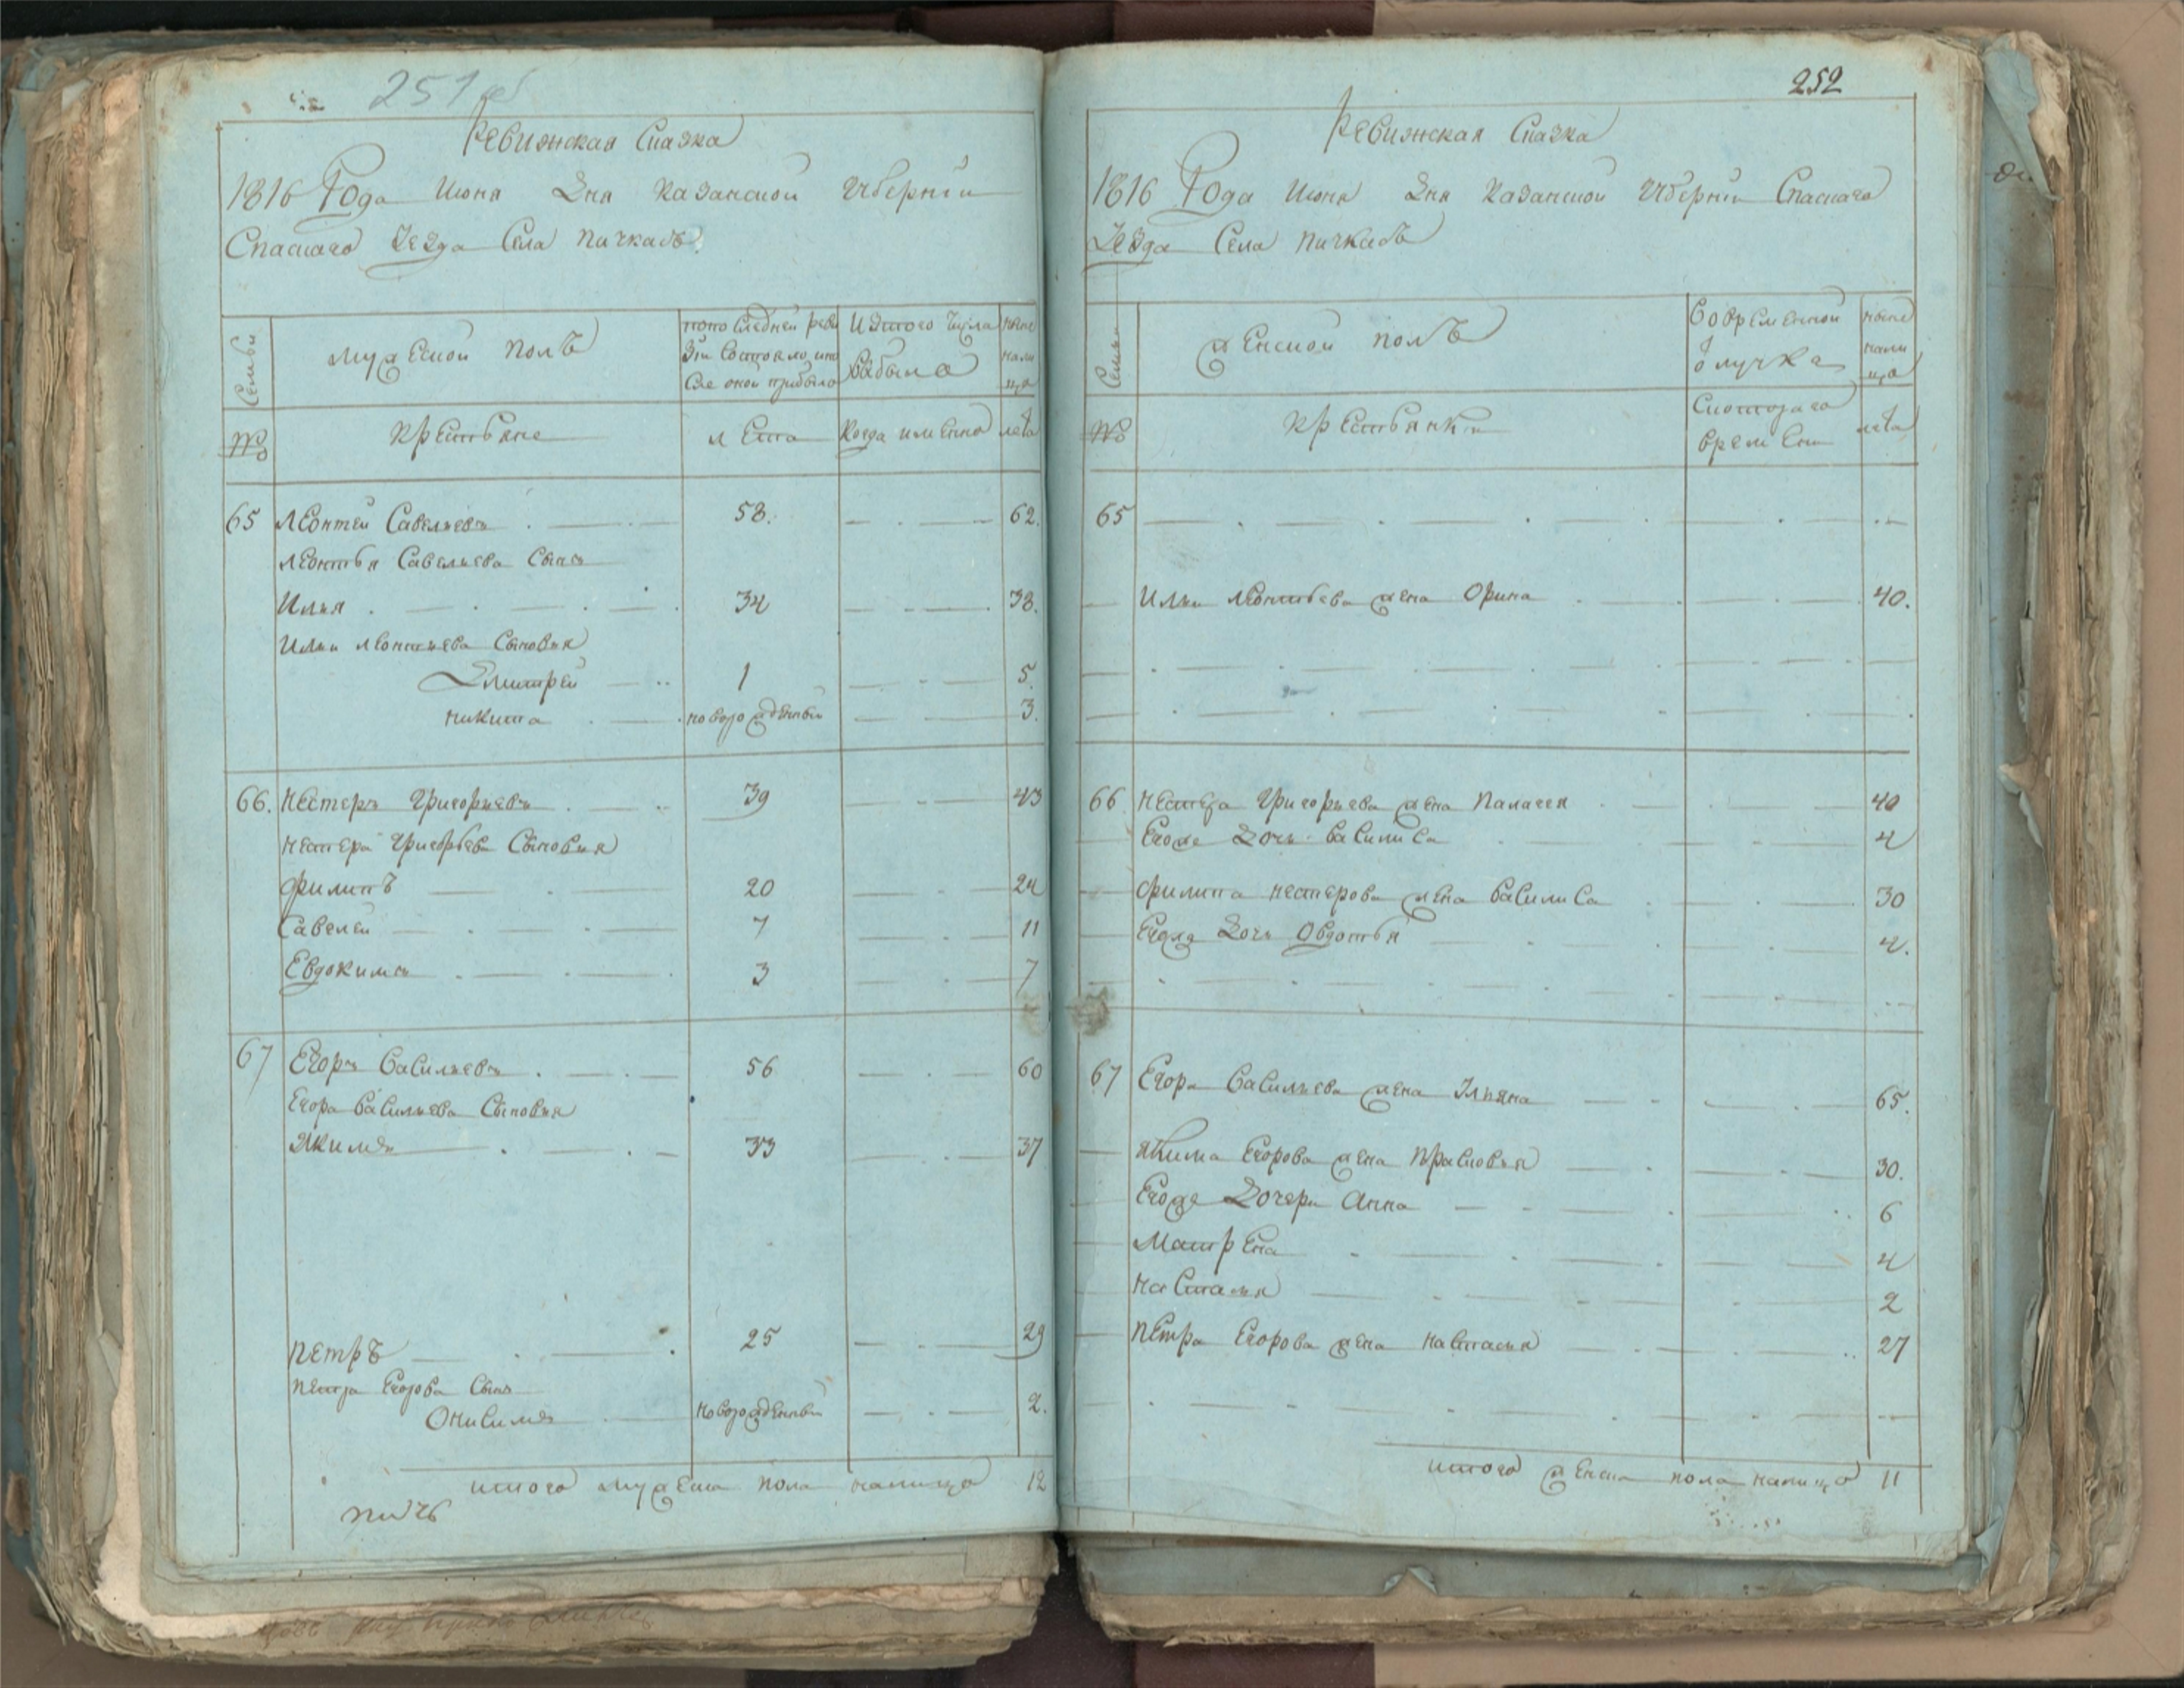 251об
Ревижская Сказка
1816 Года Июня Дня Казанской Губернїи
Спаскаго Уезда Села Пичкасъ
Семьи
Мужескои полъ
по последней реви
зїи состояло, и по
сле оной прибыло
Изтого числа
выбыло
ныне
нали
цо
№
Крестьяне
лета
Когда имянно
лета
65 Леонтеи Савельевъ 58. 62.
Леонтья Савельева Сынъ
Илья 34 38.
Ильи Леонтьева Сыновья
Дмитреи 1 5.
Никита новорожденныи 3.
66. Нестеръ Григорьевъ 39 43
Нестера Григорьева Сыновья
Филипъ 20 24
Савелеи 7 11
Евдокимъ 3 7
67 Егоръ Васильевъ 56 60
Егора Васильева Сыновья
Якимъ 33 37
Петръ 25 29
Петра Егорова Сынъ
Онисимъ новорожденныи 2.
итого мужеска пола налицо 12
252
Ревижская Сказка
1816 Года Июня Дня Казанской Губернїи Спаскаго
Уезда Села Пичкасъ
Семьи
Женскои полъ
Вовременной
отлучке
ныне
нали
цо
№
Крестьянки
Скотораго
времени
лета
65
Ильи Леонтьева жена Орина 40.
66 Нестера Григорьева жена Палагея 40
Егоже Дочь Василиса 4
Филипа Нестерова жена Василиса 30
Егоже Дочь Овдотья 4.
67 Егора Васильева жена Ульяна 65.
Якима Егорова жена Прасковья 30.
Егоже Дочери Анна 6
Матрена 4
Настасья 2
Петра Егорова жена Настасья 27
итого женска пола налицо 11